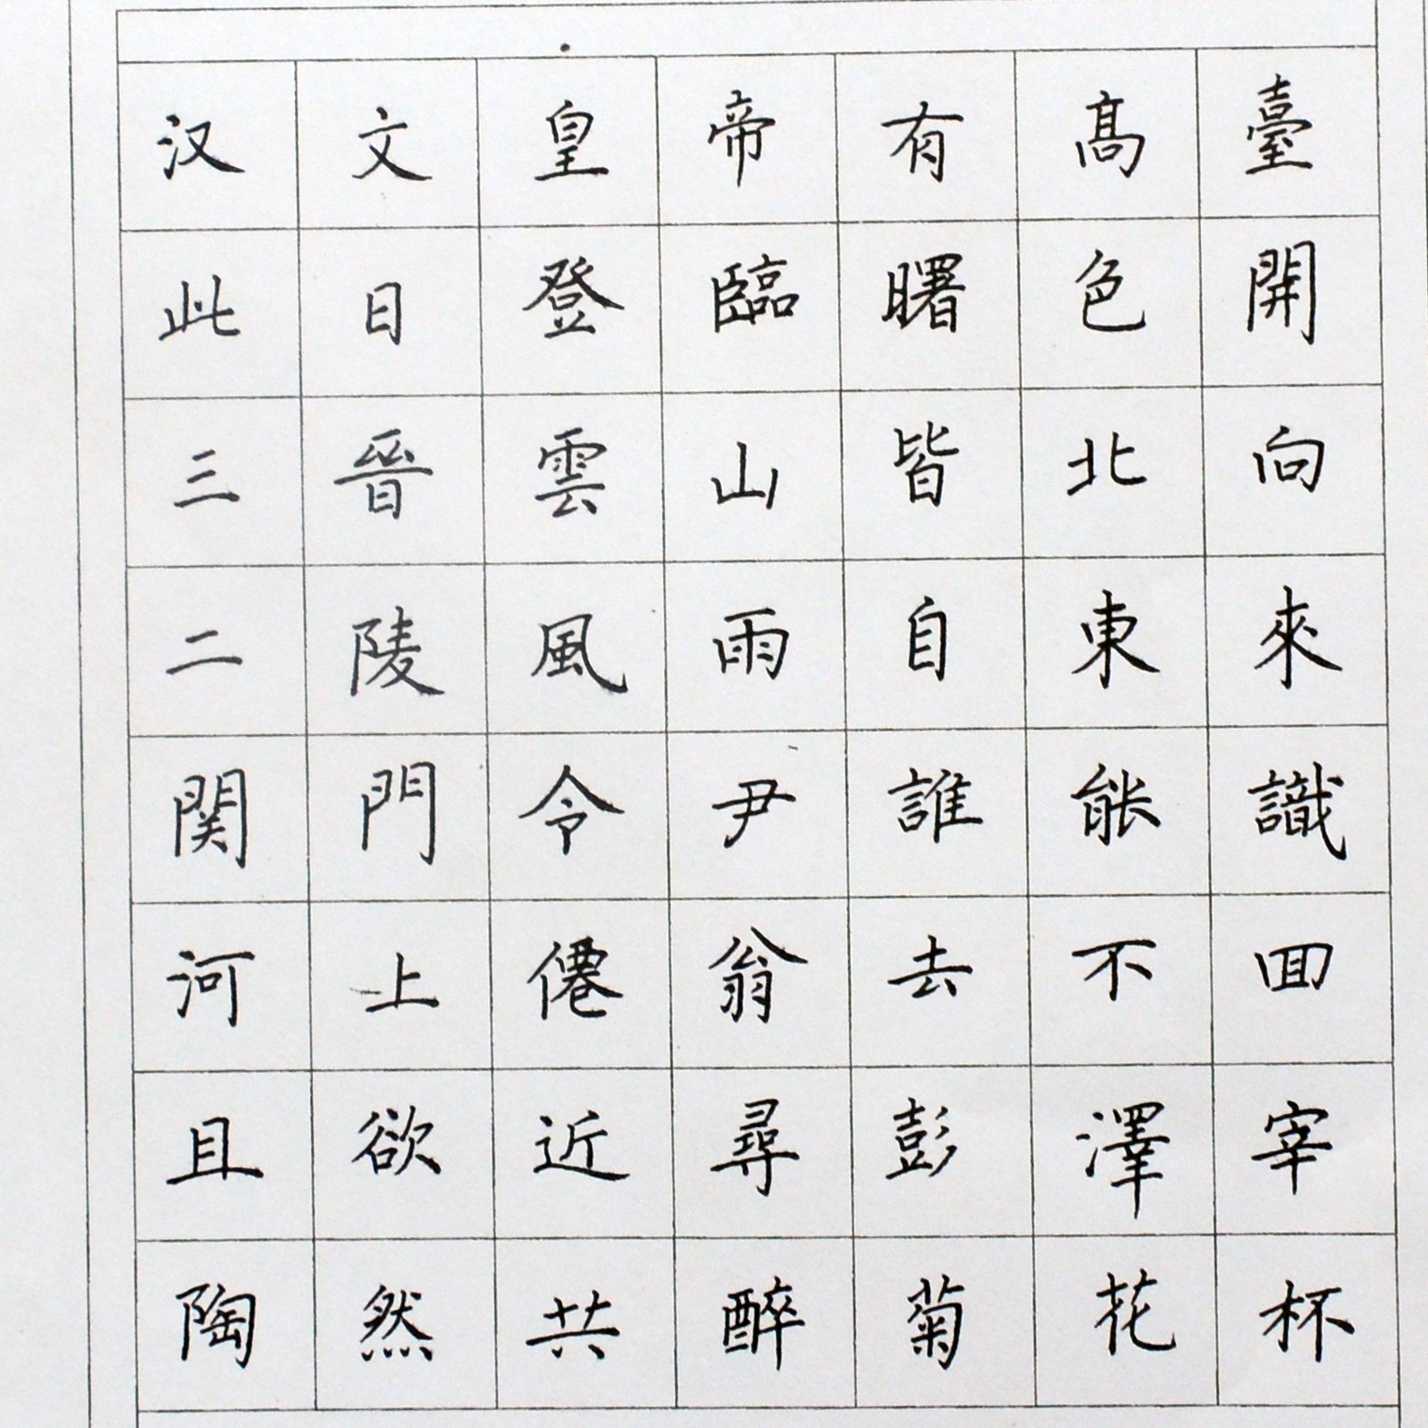 汉文皇帝有高臺
此日登臨曙色開
三晉雲山皆北向
二陵風雨自東來
関門令尹誰能識
河上僊翁去不回
且欲近尋彭澤宰
陶然共醉菊花杯